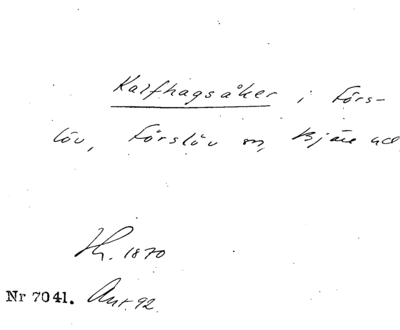 Kalfhagsåker i Förs-
löv, Förslöv sn, Bjäre hd
Th. 1870
Nr 7041. Ant. 92.